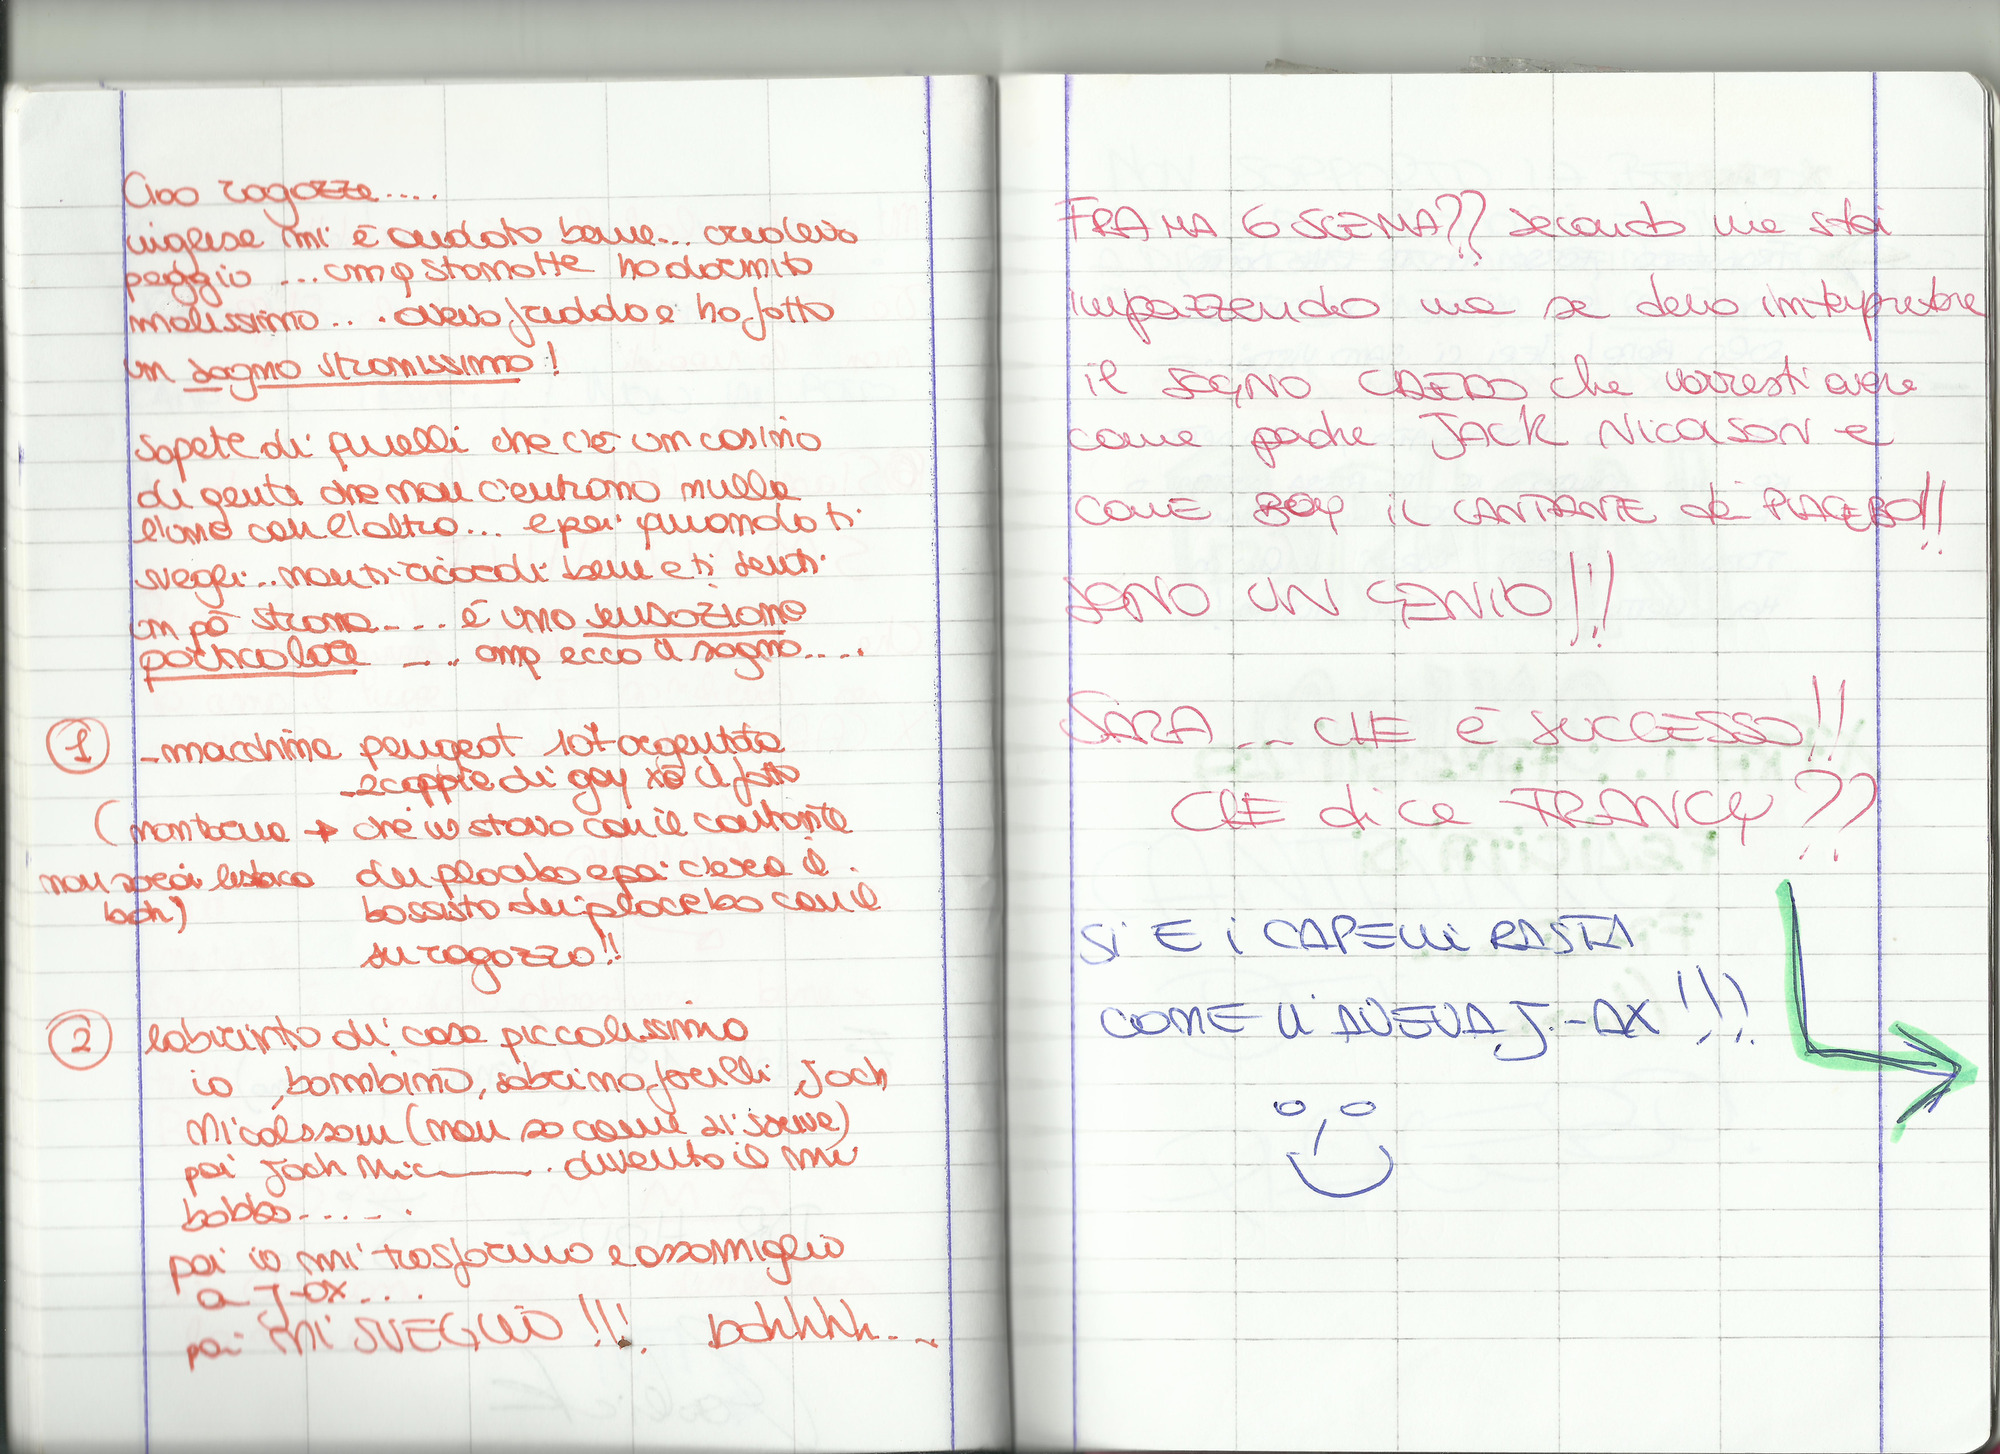 Ciao ragazze....
inglese mi è andato bene... credevo
peggio ... cmq stanotte ho dormito
malissimo... avevo freddo e ho fatto
un sogno stranissimo!
sapete di quelli che c'è un casino
di gente che non c'entrano nulla
l'uno con l'altro... e poi quando ti
svegli.. non ti ricordi bene e ti senti
un pò strana.... è una sensazione
particolare .... cmq ecco il sogno.....
1 -macchina peugeot 107 argentata
-2 coppie di gay xò il fatto
(non torna → che io stavo con il cantante
non sarei lesbica dei placebo e poi c'era il
boh) bassista dei placebo con il
su ragazzo!!
2 labirinto di case piccolissimo
io, bambino, sabrina ferilli, Jack
Nicolsson (non so come si scrive)
poi Jack Nic—— diventa il mi
babbo.....
poi io mi trasformo e assomiglio
a J-ax...
poi MI SVEGLIO!!! bohhhh....
FRA MA 6 SCEMA?? secondo me stai
impazzendo ma se devo interpretare
il SOGNO CREDO che vorresti avere
come padre JACK NICOLSON e
COME BOY IL CANTANTE dei PLACEBO!!
SONO UN GENIO!!
SARA ... CHE È SUCCESSO!!
CHE dice FRANCY??
SI E I CAPELLI RASTA
COME LI AVEVA J.-AX!!!